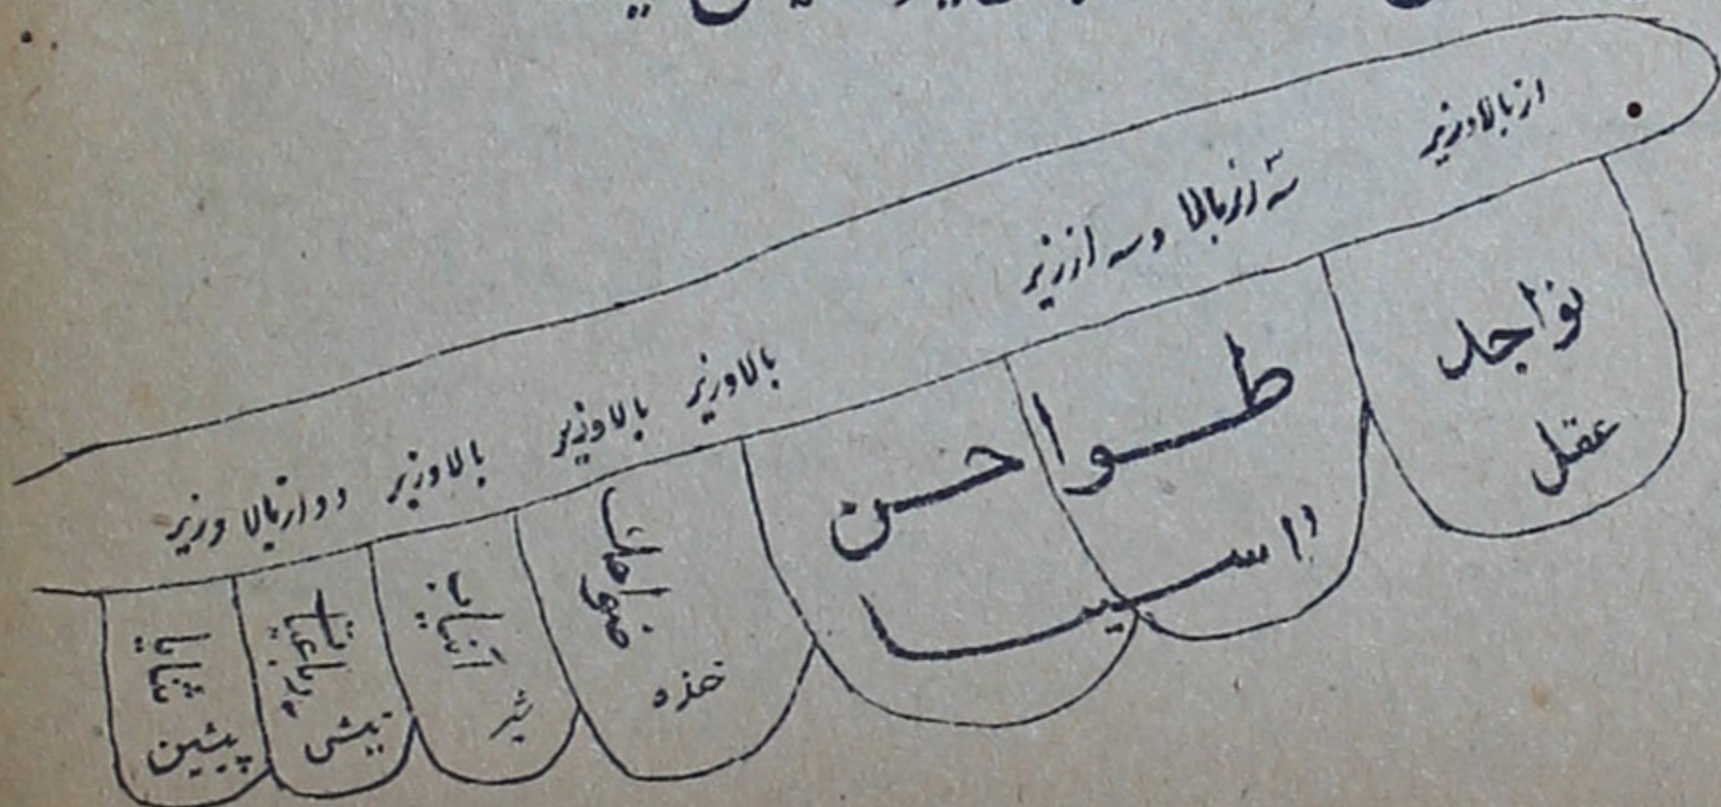 از بالا و زیر
سه از بالا و سه از زیر
بالا و زیر
بالا و زیر
بالا و زیر
دو از بالا و زیر
نواجد
عقل
طواحن
اسیا
ضواحک
خنده
انیاب
شیر
رباعیات
نیش
ثنایا
پیشین